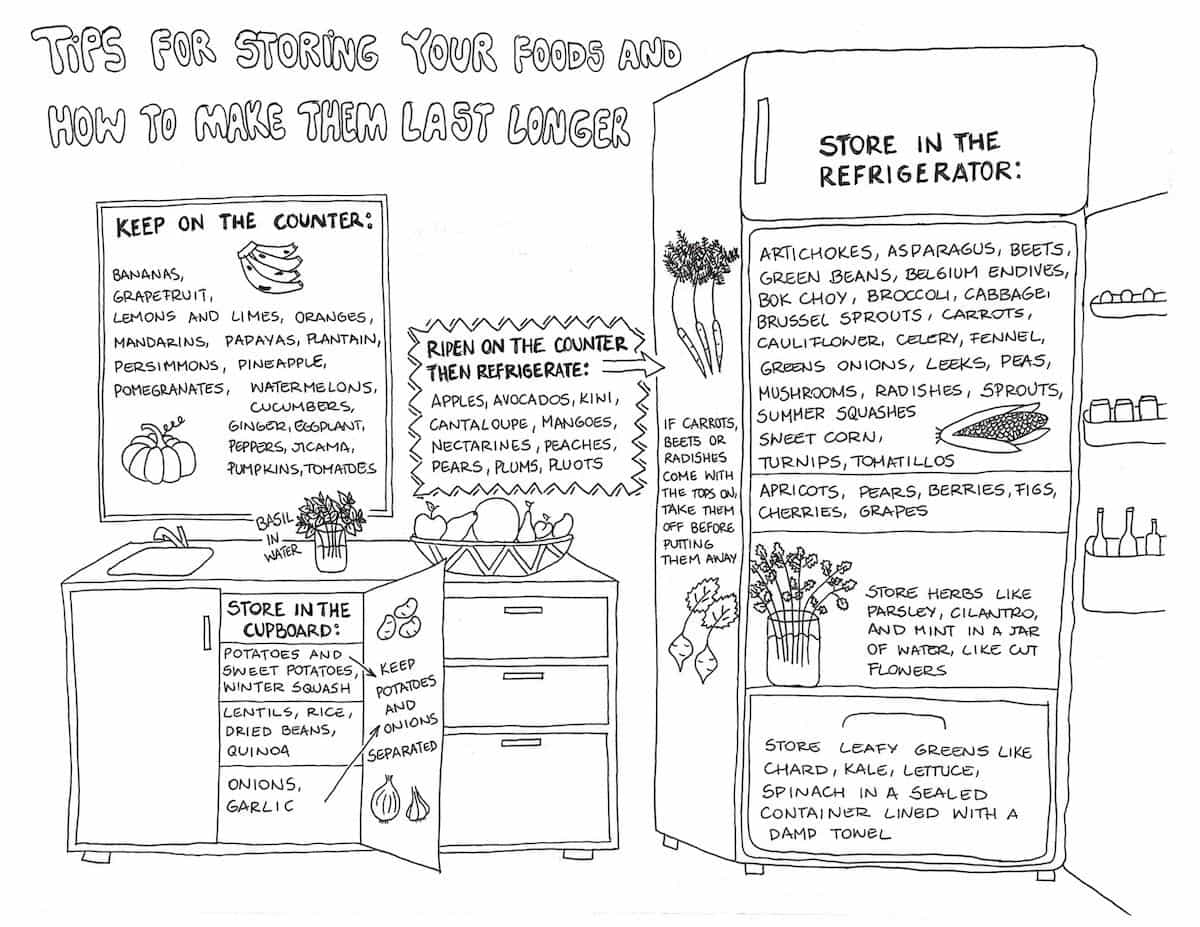 TIPS FOR STORING YOUR FOODS AND
HOW TO MAKE THEM LAST LONGER
KEEP ON THE COUNTER:
BANANAS,
GRAPEFRUIT,
LEMONS AND LIMES, ORANGES,
MANDARINS, PAPAYAS, PLANTAIN,
PERSIMMONS, PINEAPPLE,
POMEGRANATES, WATERMELONS,
CUCUMBERS,
GINGER, EGGPLANT,
PEPPERS, JICAMA,
PUMPKINS, TOMATOES
RIPEN ON THE COUNTER
THEN REFRIGERATE:
APPLES, AVOCADOS, KINI,
CANTALOUPE, MANGOES,
NECTARINES, PEACHES,
PEARS, PLUMS, PLUOTS
BASIL
IN
WATER
STORE IN THE
CUPBOARD:
POTATOES AND
SWEET POTATOES,
WINTER SQUASH
LENTILS, RICE,
DRIED BEANS,
QUINOA
ONIONS,
GARLIC
KEEP
POTATOES
AND
ONIONS
SEPARATED
IF CARROTS,
BEETS OR
RADISHES
COME WITH
THE TOPS ON,
TAKE THEM
OFF BEFORE
PUTTING
THEM AWAY
STORE IN THE
REFRIGERATOR:
ARTICHOKES, ASPARAGUS, BEETS,
GREEN BEANS, BELGIUM ENDIVES,
BOK CHOY, BROCCOLI, CABBAGE,
BRUSSEL SPROUTS, CARROTS,
CAULIFLOWER, CELERY, FENNEL,
GREENS ONIONS, LEEKS, PEAS,
MUSHROOMS, RADISHES, SPROUTS,
SUMMER SQUASHES
SWEET CORN,
TURNIPS, TOMATILLOS
APRICOTS, PEARS, BERRIES, FIGS,
CHERRIES, GRAPES
STORE HERBS LIKE
PARSLEY, CILANTRO,
AND MINT IN A JAR
OF WATER, LIKE CUT
FLOWERS
STORE LEAFY GREENS LIKE
CHARD, KALE, LETTUCE,
SPINACH IN A SEALED
CONTAINER LINED WITH A
DAMP TOWEL